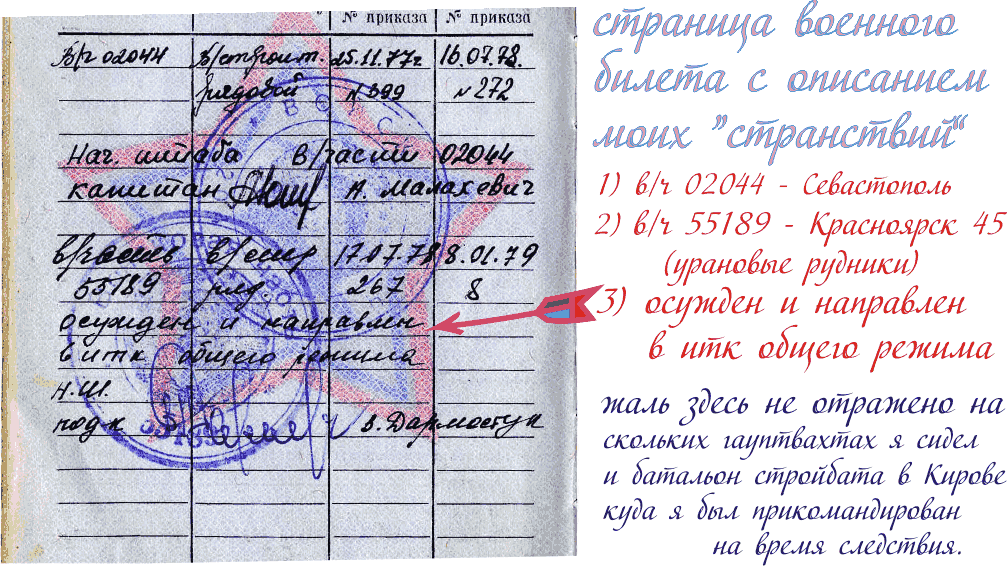 № приказа № приказа
В/ч 02044 В/строит. 25.11.77г 16.07.78.
рядовой N 399 N 272
Нач. штаба в/части 02044
капитан А. Малахевич
в/часть в/стр 17.07.78 8.01.79
55189 ряд 267 8
осужден и направлен
в итк общего режима
Н.Ш.
подк В. Дармостук
страница военного
билета с описанием
моих "странствий"
1) в/ч 02044 - Севастополь
2) в/ч 55189 - Красноярск 45
(урановые рудники)
3) осужден и направлен
в итк общего режима
жаль здесь не отражено на
скольких гауптвахтах я сидел
и батальон стройбата в Кирове
куда я был прикомандирован
на время следствия.